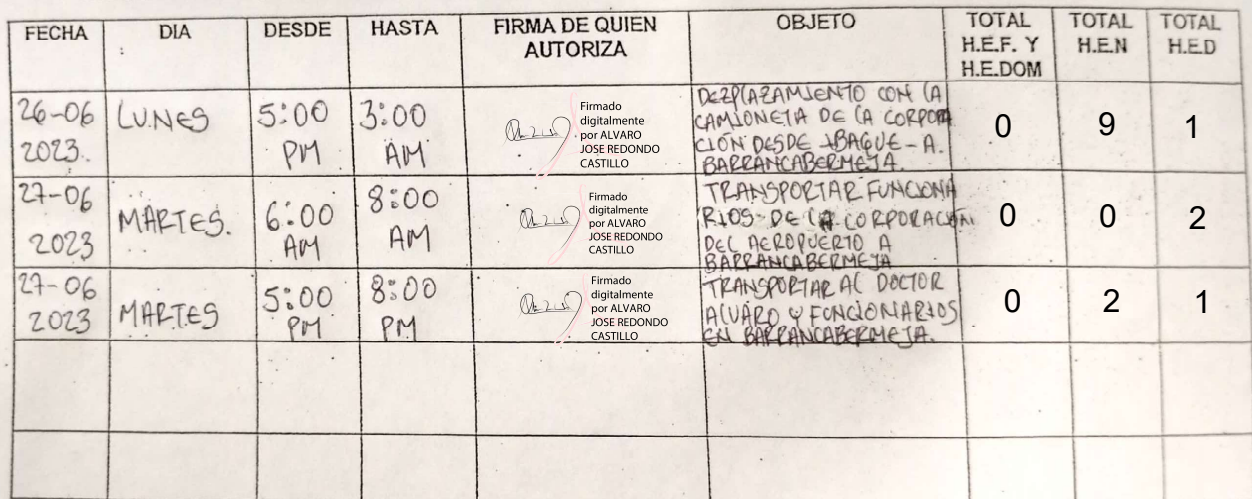 FECHA DIA DESDE HASTA FIRMA DE QUIEN AUTORIZA OBJETO TOTAL H.E.F. Y H.E.DOM TOTAL H.E.N TOTAL H.E.D
26-06
2023.
LUNES
5:00
PM
3:00
AM
Firmado
digitalmente
por ALVARO
JOSE REDONDO
CASTILLO
DEZPLAZAMIENTO CON LA
CAMIONETA DE LA CORPORA
CIÓN DESDE IBAGUE - A.
BARRANCABERMEJA.
0 9 1
27-06
2023
MARTES.
6:00
AM
8:00
AM
Firmado
digitalmente
por ALVARO
JOSE REDONDO
CASTILLO
TRANSPORTAR FUNCIONA
RIOS DE LA CORPORACION
DEL AEROPUERTO A
BARRANCABERMEJA
0 0 2
27-06
2023
MARTES
5:00
PM
8:00
PM
Firmado
digitalmente
por ALVARO
JOSE REDONDO
CASTILLO
TRANSPORTAR AL DOCTOR
ALVARO Y FUNCIONARIOS
EN BARRANCABERMEJA.
0 2 1